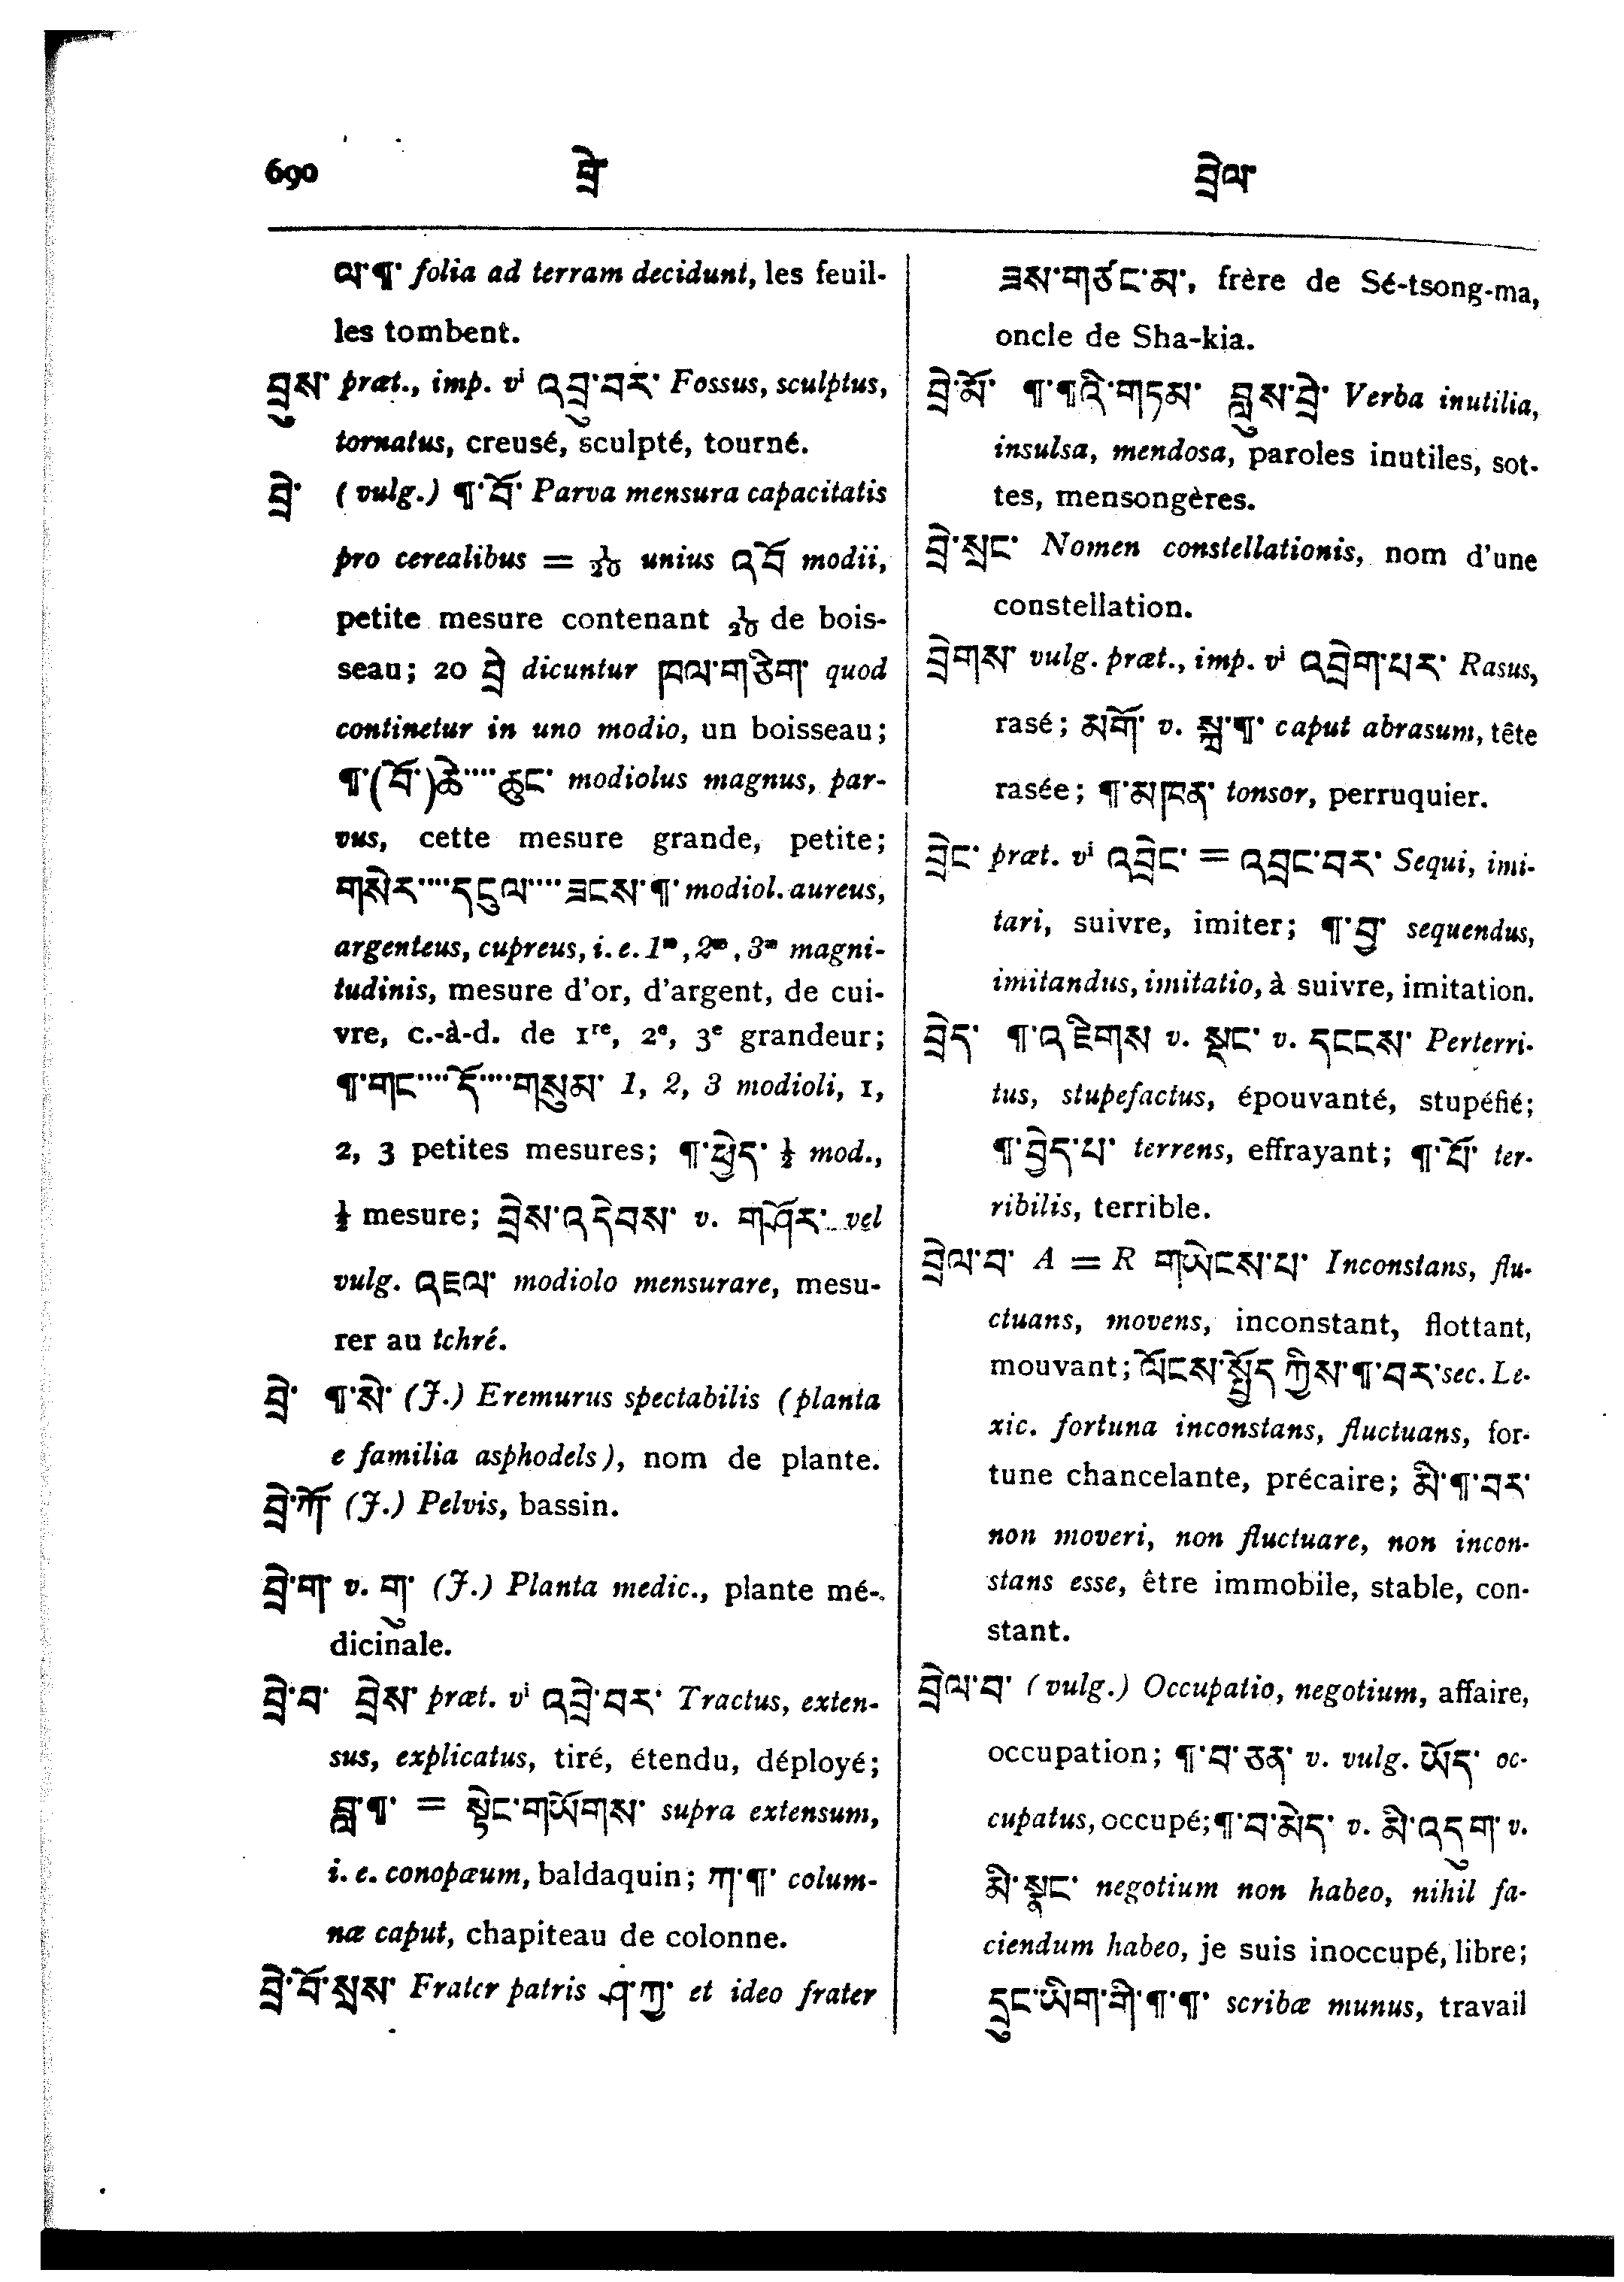 690 བྲེ བྲེལ་
ལ་¶་ folia ad terram decidunt, les feuil-
les tombent.
བྲུས་ præt., imp. vi འབྲུ་བར་ Fossus, sculptus,
tornatus, creusé, sculpté, tourné.
བྲེ་ (vulg.) ¶་བོ་ Parva mensura capacitatis
pro cerealibus = 1/20 unius འབོ modii,
petite mesure contenant 1/20 de bois-
seau; 20 བྲེ dicuntur ཁལ་གཅིག་ quod
continetur in uno modio, un boisseau;
¶་(བོ་)ཆེ་···· ཆུང་ modiolus magnus, par-
vus, cette mesure grande, petite;
གསེར་····དངུལ་····ཟངས་¶་ modiol. aureus,
argenteus, cupreus, i. e. 1æ, 2æ, 3æ magni-
tudinis, mesure d'or, d'argent, de cui-
vre, c.-à-d. de 1re, 2e, 3e grandeur;
¶་གང་····དོ་····གསུམ་ 1, 2, 3 modioli, 1,
2, 3 petites mesures; ¶་ཕྱེད་ ½ mod.,
½ mesure; བྲེས་འདེབས་ v. གཤོར་ vel
vulg. འཇལ་ modiolo mensurare, mesu-
rer au tchré.
བྲེ་ ¶་སེ་ (J.) Eremurus spectabilis (planta
e familia asphodels), nom de plante.
བྲེ་ཀོ (J.) Pelvis, bassin.
བྲེ་ག་ v. གུ་ (J.) Planta medic., plante mé-
dicinale.
བྲེ་བ་ བྲེས་ præt. vi འབྲེ་བར་ Tractus, exten-
sus, explicatus, tiré, étendu, déployé;
བླ་¶་ = སྟེང་གཡོགས་ supra extensum,
i. e. conopæum, baldaquin; ཀ་¶་ colum-
næ caput, chapiteau de colonne.
བྲེ་བོ་སྲས་ Frater patris ཤ་ཀྱ་ et ideo frater
ཟས་གཙང་མ་, frère de Sé-tsong-ma,
oncle de Sha-kia.
བྲེ་མོ་ ¶་¶འི་གཏམ་ བླུས་བྲེ་ Verba inutilia,
insulsa, mendosa, paroles inutiles, sot-
tes, mensongères.
བྲེ་སྲང་ Nomen constellationis, nom d'une
constellation.
བྲེགས་ vulg. præt., imp. vi འབྲེག་པར་ Rasus,
rasé; མགོ་ v. སྐྲ་¶་ caput abrasum, tête
rasée; ¶་མཁན་ tonsor, perruquier.
བྲེང་ præt. vi འབྲེང་ = འབྲང་བར་ Sequi, imi-
tari, suivre, imiter; ¶་བྱ་ sequendus,
imitandus, imitatio, à suivre, imitation.
བྲེད་ ¶་འཇིགས v. སྡང་ v. དངངས་ Perterri-
tus, stupefactus, épouvanté, stupéfié;
¶་བྱེད་པ་ terrens, effrayant; ¶་པོ་ ter-
ribilis, terrible.
བྲེལ་བ་ A = R གཡེངས་པ་ Inconstans, flu-
ctuans, movens, inconstant, flottant,
mouvant; ལོངས་སྤྱོད་ཀྱིས་¶་བར་ sec. Le-
xic. fortuna inconstans, fluctuans, for-
tune chancelante, précaire; མི་¶་བར་
non moveri, non fluctuare, non incon-
stans esse, être immobile, stable, con-
stant.
བྲེལ་བ་ (vulg.) Occupatio, negotium, affaire,
occupation; ¶་བ་ཅན་ v. vulg. ཡོད་ oc-
cupatus, occupé; ¶་བ་མེད་ v. མི་འདུག་ v.
མི་སྣང་ negotium non habeo, nihil fa-
ciendum habeo, je suis inoccupé, libre;
དྲུང་ཡིག་གི་¶་¶་ scribæ munus, travail